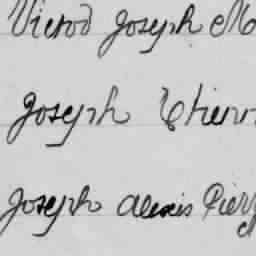 Victor Joseph M
Joseph Etienn
Joseph Alexis Pierr